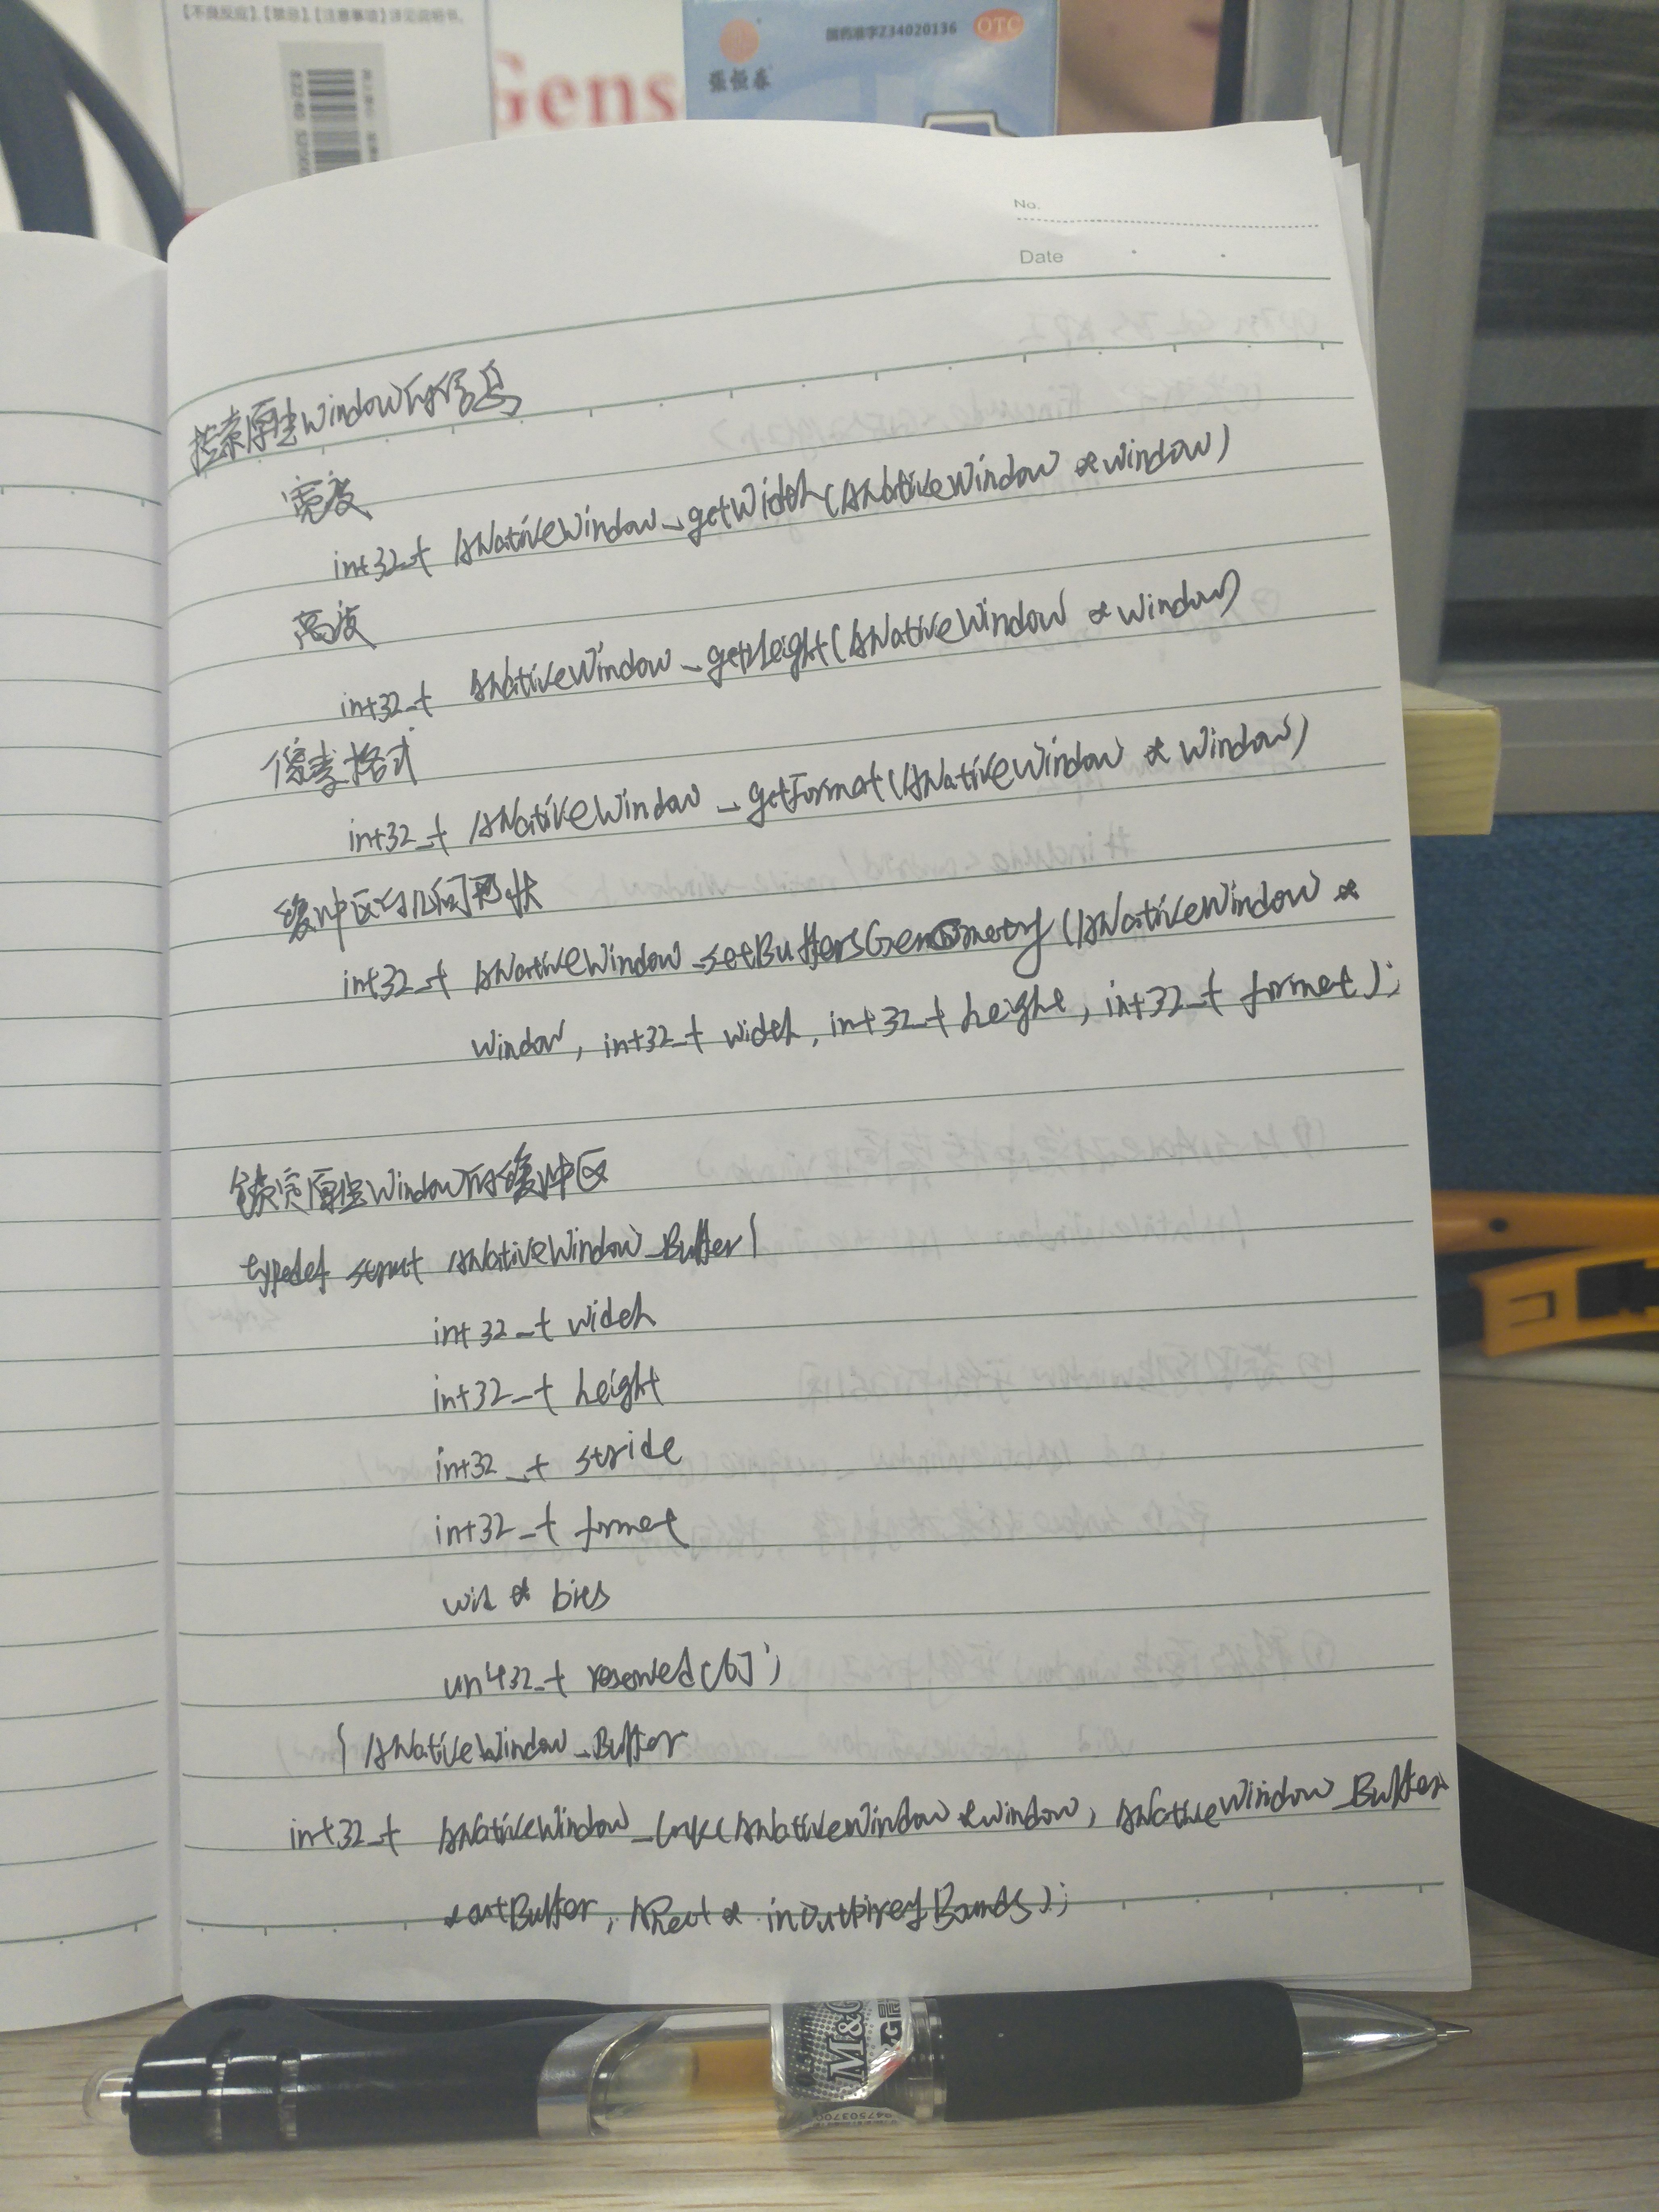 【不良反应】【禁忌】【注意事项】详见说明书。
Gens
张恒春
国药准字Z34020136
OTC
No.
Date
检索原生window的信息
宽度
int32_t ANativeWindow_getWidth(ANativeWindow *window)
高度
int32_t ANativeWindow_getHeight(ANativeWindow *window)
像素格式
int32_t ANativeWindow_getFormat(ANativeWindow *window)
缓冲区的几何形状
int32_t ANativeWindow_setBuffersGeometry(ANativeWindow *
window, int32_t width, int32_t height, int32_t format);
锁定原生window的缓冲区
typedef struct ANativeWindow_Buffer{
int32_t width
int32_t height
int32_t stride
int32_t format
void * bits
uint32_t reserved[6];
} ANativeWindow_Buffer
int32_t ANativeWindow_lock(ANativeWindow *window, ANativeWindow_Buffer
*outBuffer, ARect * inOutDirtyBounds);
M&G